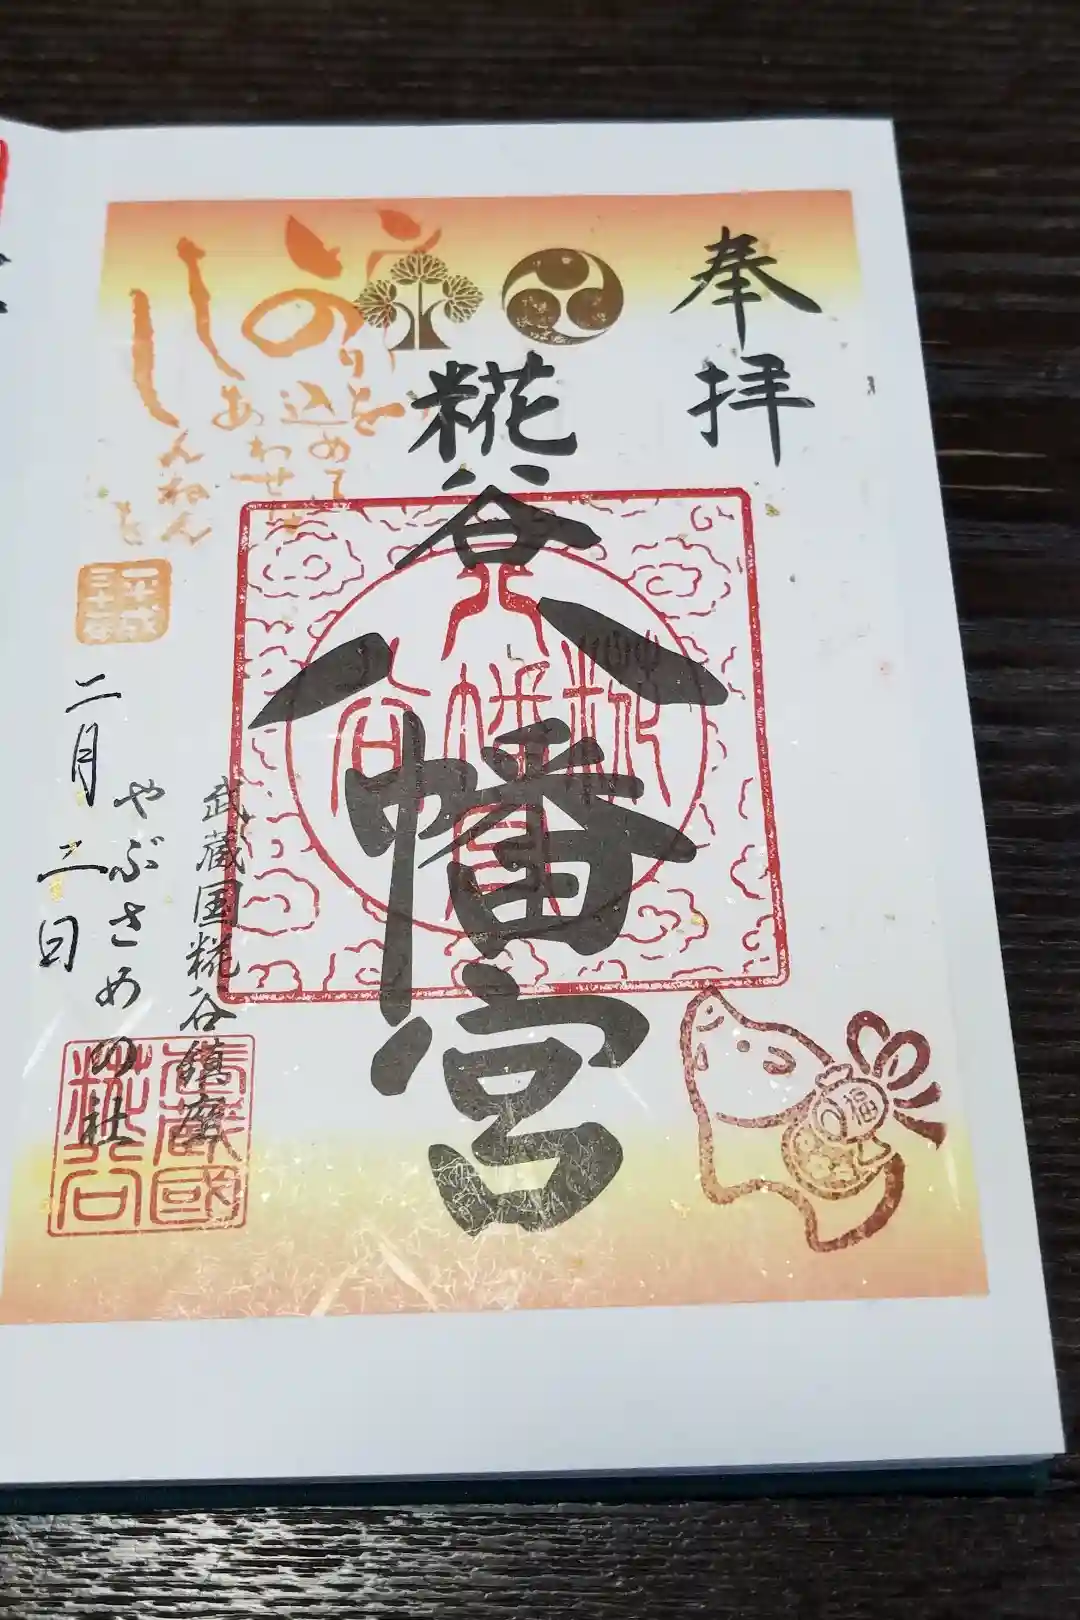 奉拝
糀谷
八幡宮
糀谷八幡宮
福
武蔵国糀谷鎮座
やぶさめの社
武蔵國
糀谷
いのりを
込めて
あわせ
しんねん
平成
二月二日